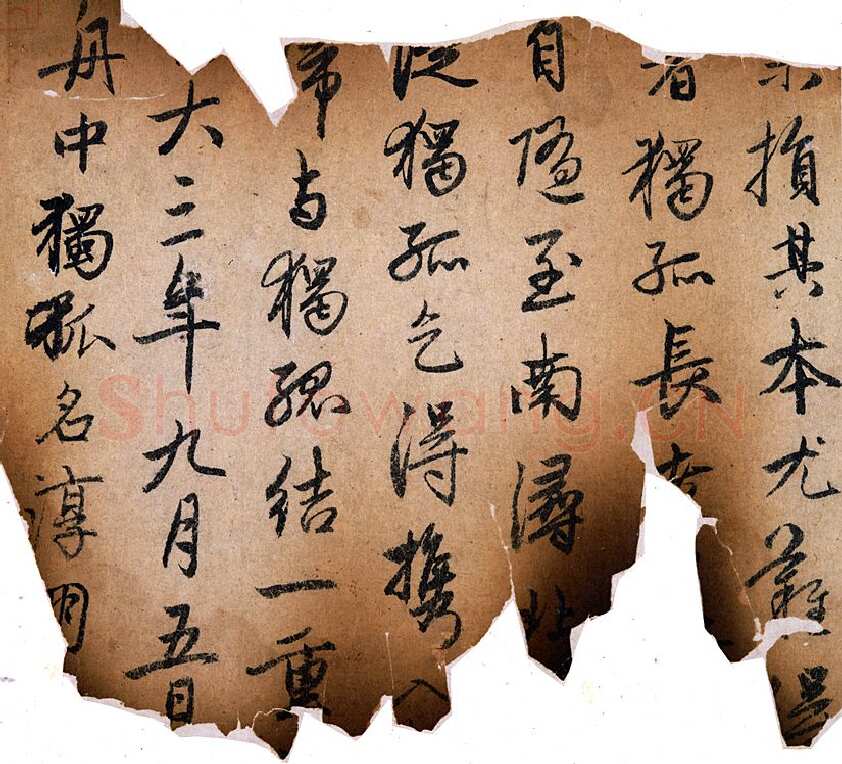 未損其本尤難得
者獨孤長老
自隨至南潯北
從獨孤乞得攜入
帝与獨孤結一重
大三年九月五日
舟中獨孤名淳朋
Shufawang.CN